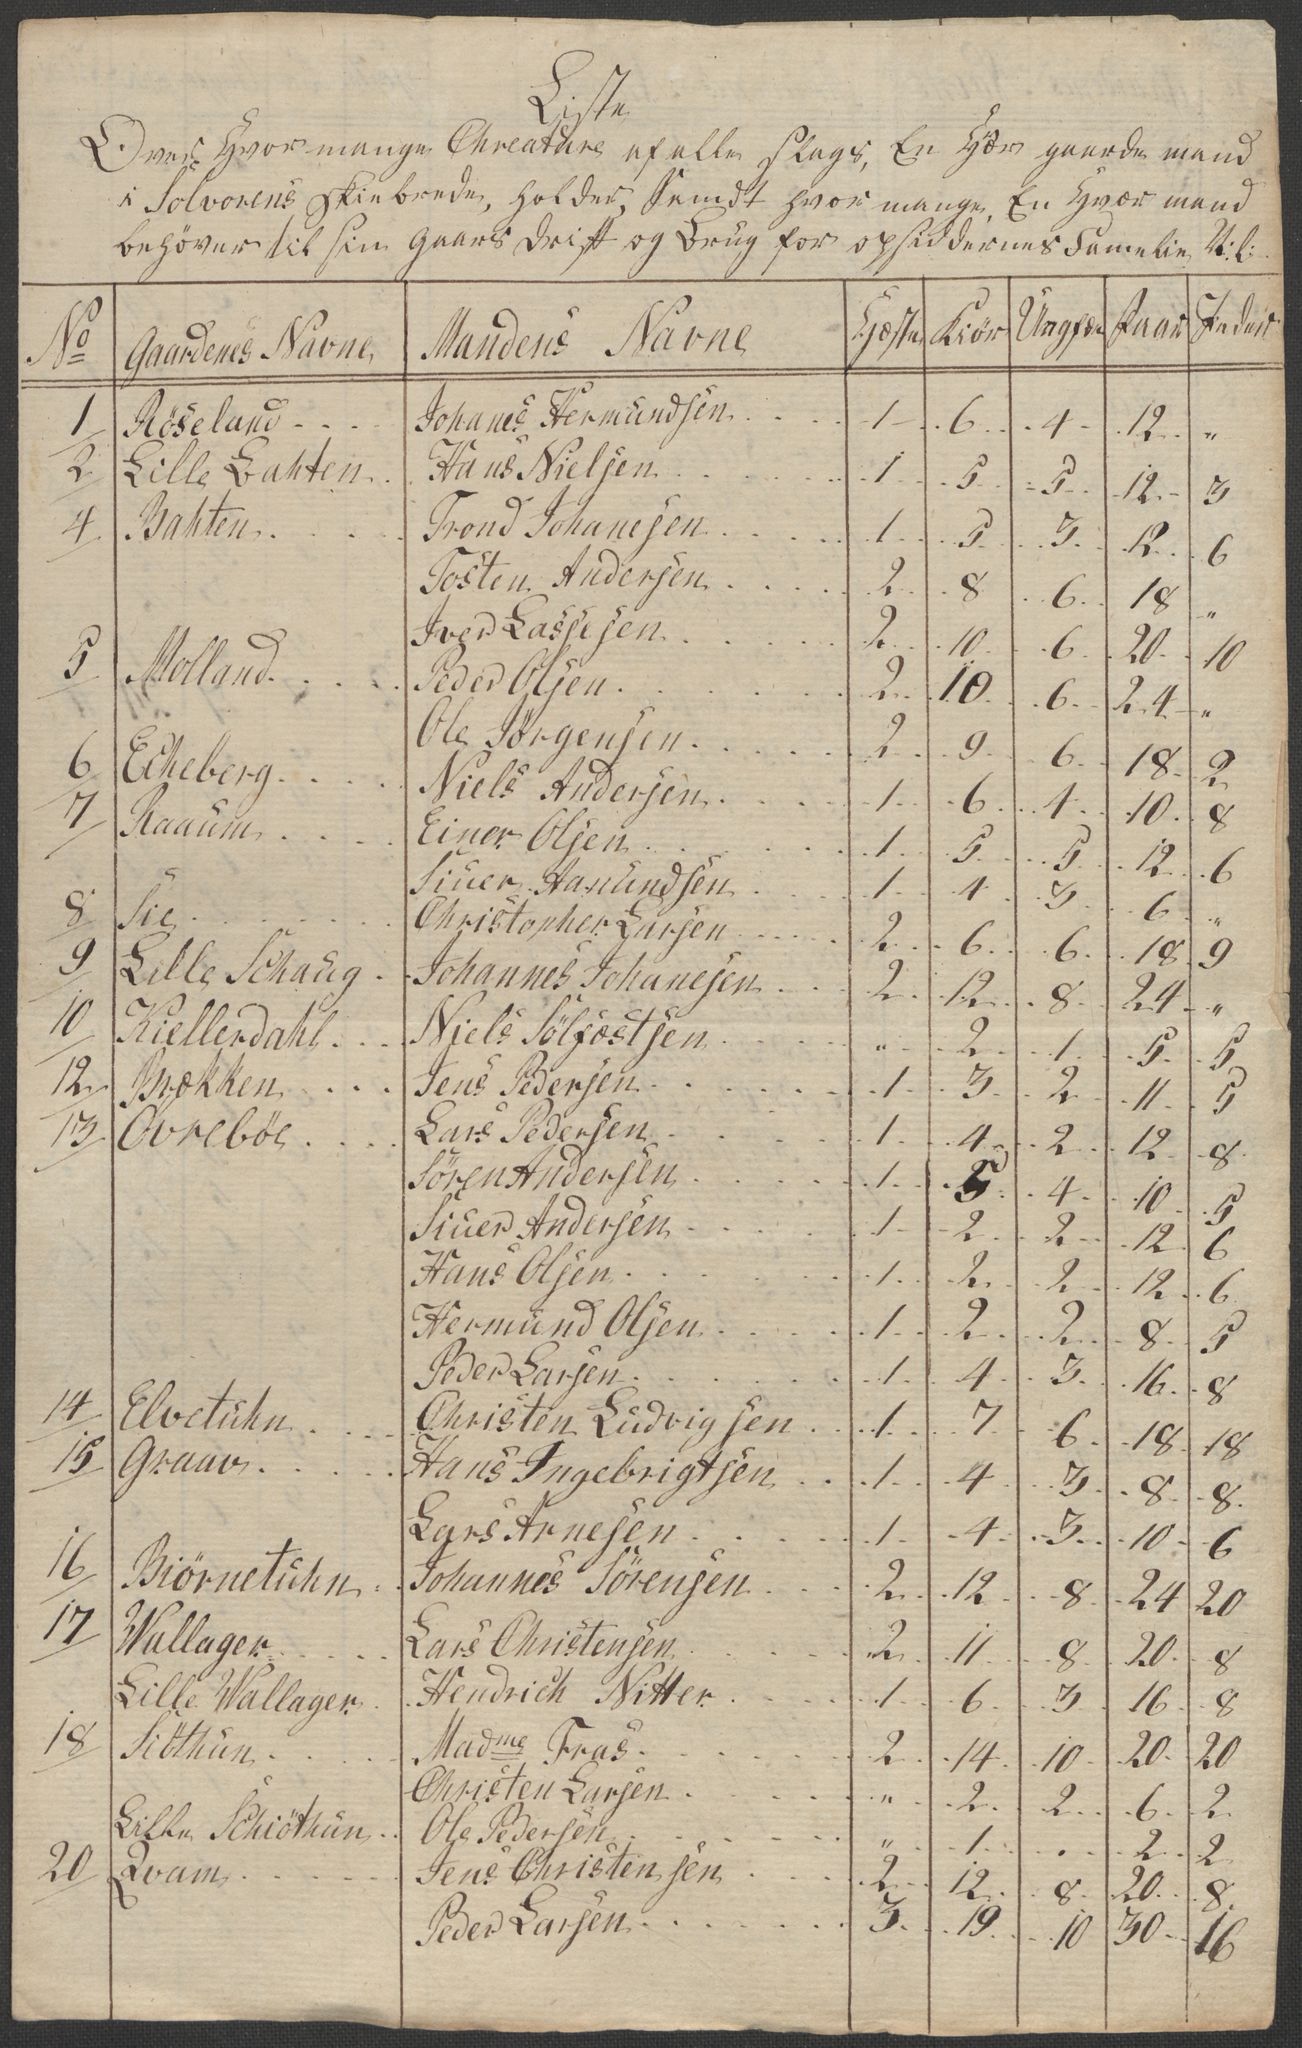 Liste
Over Hvor mange Chreature af alle slags, En Hvær gaarde mand
i Solvorens Skiebrede, holder, samdt hvor mange, En Hvær mand
behöver til sin Gaars drift og Brug for opsiddernes Famelie
No Gaardenes Navne Mandens Navne Hæste Kiör Ungfæe Faar Gieder
1 Röseland Johanes Hermundsen 1 6 4 12 "
2 Lille Bahten Hans Nielsen 1 5 5 12 3
4 Bahten Trond Johanesen 1 5 3 12 6
Tosten Andersen 2 8 6 18 "
Iver Lassesen 2 10 6 20 10
5 Molland Peder Olsen 2 10 6 24 "
Ole Jörgensen 2 9 6 18 2
6 Echeberg Niels Andersen 1 6 4 10 8
7 Raaum Einer Olsen 1 5 5 12 6
Siuer Amundsen 1 4 3 6 "
8 Sie Christopher Larsen 2 6 6 18 9
9 Lille Schaug Johannes Johanesen 2 12 8 24 "
10 Kiellerdahl Niels Sölfæstsen " 2 1 5 5
12 Brækken Jens Pedersen 1 3 2 11 5
13 Ovreböe Lars Pedersen 1 4 2 12 8
Sören Andersen 1 5 4 10 5
Siuer Andersen 1 2 2 12 6
Hans Olsen 1 2 2 12 6
Hermund Olsen 1 2 2 8 5
Peder Larsen 1 4 3 16 8
14 Elvetuhn Christen Ludvigsen 1 7 6 18 18
15 Graav Hans Ingebrigtsen 1 4 3 8 8
Lars Arnesen 1 4 3 10 6
16 Biörnetuhn Johannes Sörensen 2 12 8 24 20
17 Wallager Lars Christensen 2 11 8 20 8
Lille Wallager Hendrich Nitter 1 6 3 16 8
18 Siöthun Madme Fras 2 14 10 20 20
Christen Larsen " 2 2 6 2
Lille Schiöthun Ole Pedersen " 1 . 2 2
20 Qvam Jens Christensen 2 12 8 20 8
Peder Larsen 3 19 10 30 16